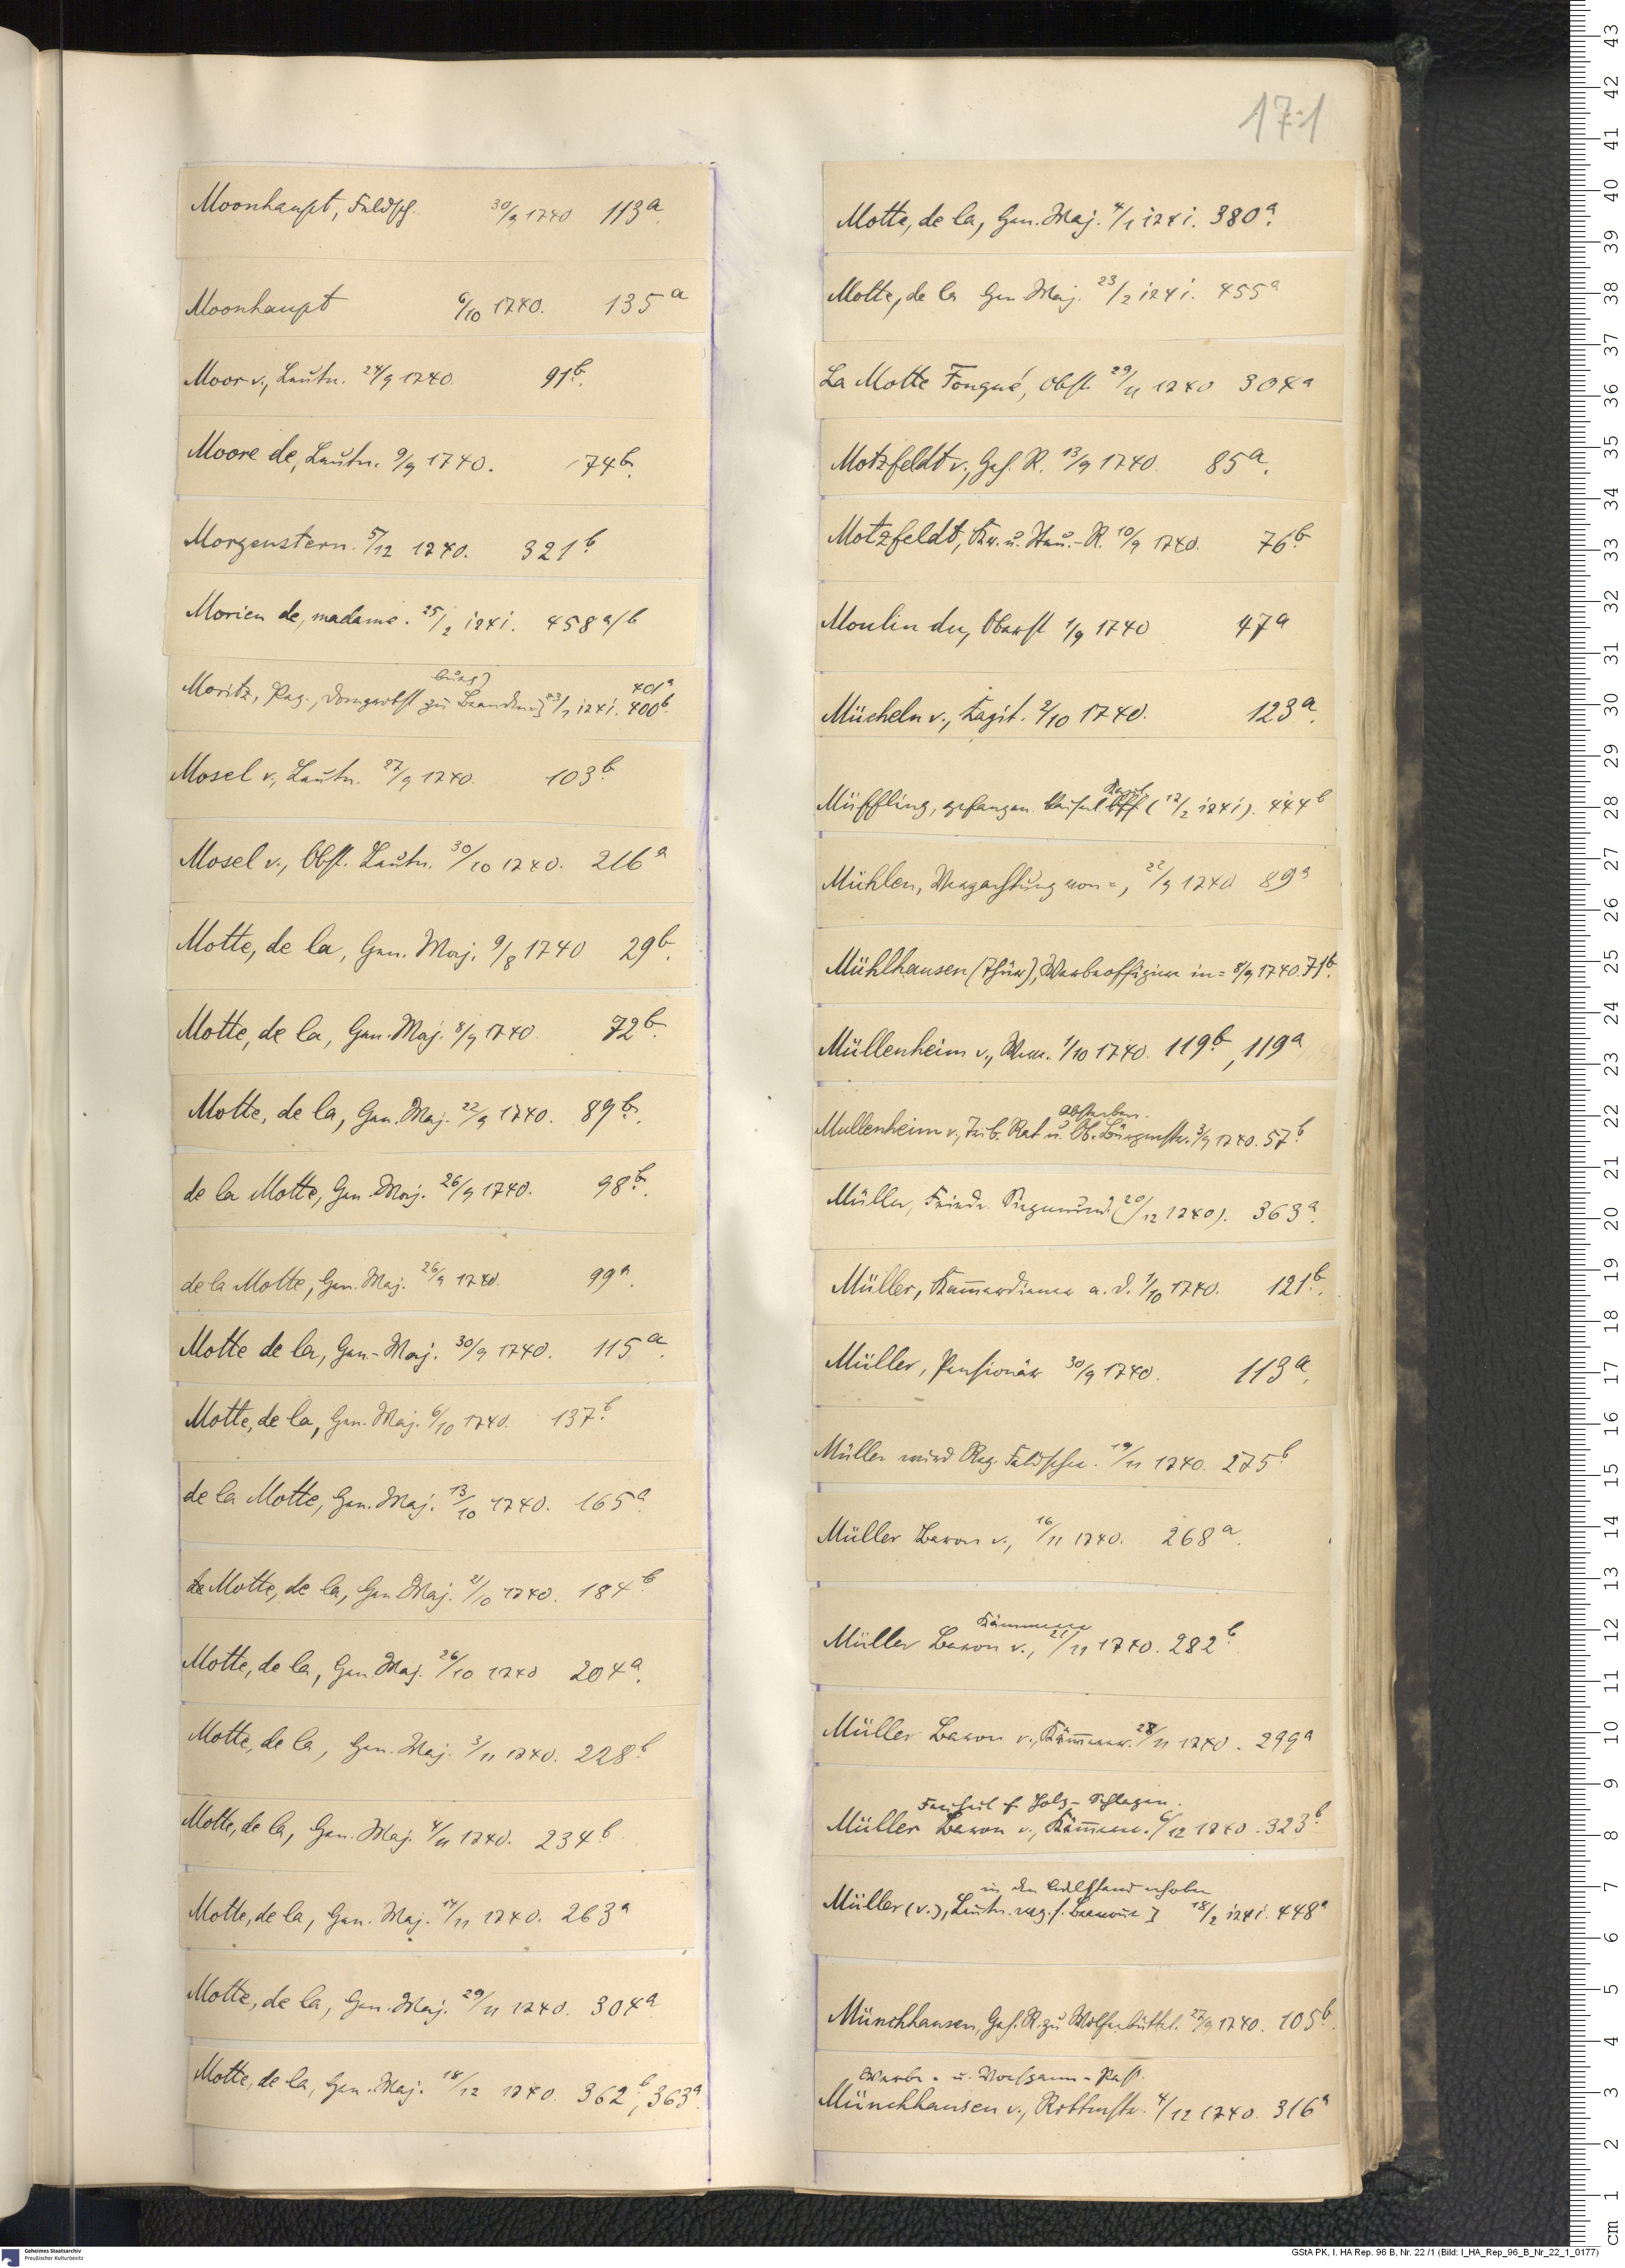 171
Moonhaupt, Feldsch. 30/9 1740 113a.
Moonhaupt 6/10 1740. 135a
Moor v., Leutn. 24/9 1740. 91b.
Moore de, Leutn. 9/9 1740. 74b.
Morgenstern. 5/12 1740. 321b
Morien de, madame. 25/2 1741. 458a/b
burg] 401a
Moritz, Prz., Domprobst zu Branden] 23/1 1741. 400b.
Mosel v., Leutn. 27/9 1740. 103b.
Mosel v., Obst. Leutn. 30/10 1740. 216a
Motte, de la, Gen. Maj. 9/8 1740 29b.
Motte, de la, Gen. Maj. 8/9 1740. 72b.
Motte, de la, Gen. Maj. 22/9 1740. 89b.
de la Motte, Gen. Maj. 26/9 1740. 98b.
de la Motte, Gen. Maj. 26/9 1740. 99a.
Motte de la, Gen.-Maj. 30/9 1740. 115a.
Motte, de la, Gen. Maj. 6/10 1740. 137b.
de la Motte, Gen. Maj. 13/10 1740. 165a.
de Motte, de la, Gen Maj. 21/10 1740. 184b.
Motte, de la, Gen. Maj. 26/10 1740 204a.
Motte, de la, Gen. Maj. 3/11 1740. 228b.
Motte, de la, Gen. Maj. 4/11 1740. 234b
Motte, de la, Gen. Maj. 14/11 1740. 263a
Motte, de la, Gen. Maj. 29/11 1740. 304a
Motte, de la, Gen. Maj. 18/12 1740. 362b, 363a.
Motte, de la, Gen. Maj. 4/1 1741. 380a.
Motte, de la Gen Maj. 23/2 1741. 455a
La Motte Fouqué, Obst. 29/11 1740 304a
Motzfeldt v., Geh. R. 13/9 1740. 85a.
Motzfeldt, Kr. u. -R. 10/9 1740. 76b.
Moulin du, Oberst 1/9 1740 47a
Mücheln v., Kapit. 2/10 1740. 123a.
Müffling, gefangen. kaiserl. Off (12/2 1741). 444b
Mühlen, Verpachtung von =, 22/9 1740 89a
Mühlhausen (Thür), Werbeoffizier in = 8/9 1740. 71b.
Müllenheim v., 1/10 1740. 119b, 119a
Absterben.
Mullenheim v., Trib. Rat u. Ob. Bürgmstr. 3/9 1740. 57b
Müller, Friedr. Siegmund (20/12 1740). 363a.
Müller, Kammerdiener a. D. 1/10 1740. 121b.
Müller, Pensionär 30/9 1740. 113a.
Müller wird Reg. Feldscher. 19/11 1740. 275b
Müller Baron v., 16/11 1740. 268a.
Kämmerer
Müller Baron v., 21/11 1740. 282b.
Müller Baron v., Kämmerer. 28/11 1740. 299a
Freiheit f. Holz-Schlagen.
Müller Baron v., Kämmerer. 6/12 1740. 323b.
in den Adelstand erhoben
Müller (v.), Leutn. ] 18/2 1741. 448a
Münchhausen, Geh. R. zu Wolfenbüttel. 27/9 1740. 105b.
Werbe- u. Vorspann-Paß.
Münchhausen v., Rittmstr. 4/12 1740. 316a
Geheimes Staatsarchiv
Preußischer Kulturbesitz
GStA PK, I. HA Rep. 96 B, Nr. 22 /1 (Bild: I_HA_Rep_96_B_Nr_22_1_0177)
43
42
41
40
39
38
37
36
35
34
33
32
31
30
29
28
27
26
25
24
23
22
21
20
19
18
17
16
15
14
13
12
11
10
9
8
7
6
5
4
3
2
1
cm